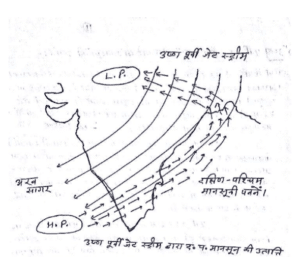 उष्ण पूर्वी जेट स्ट्रीम
L.P.
अरब
सागर
दक्षिण-पश्चिम
मानसूनी पवनें।
H.P.
उष्ण पूर्वी जेट स्ट्रीम द्वारा द० प० मानसून की उत्पत्ति